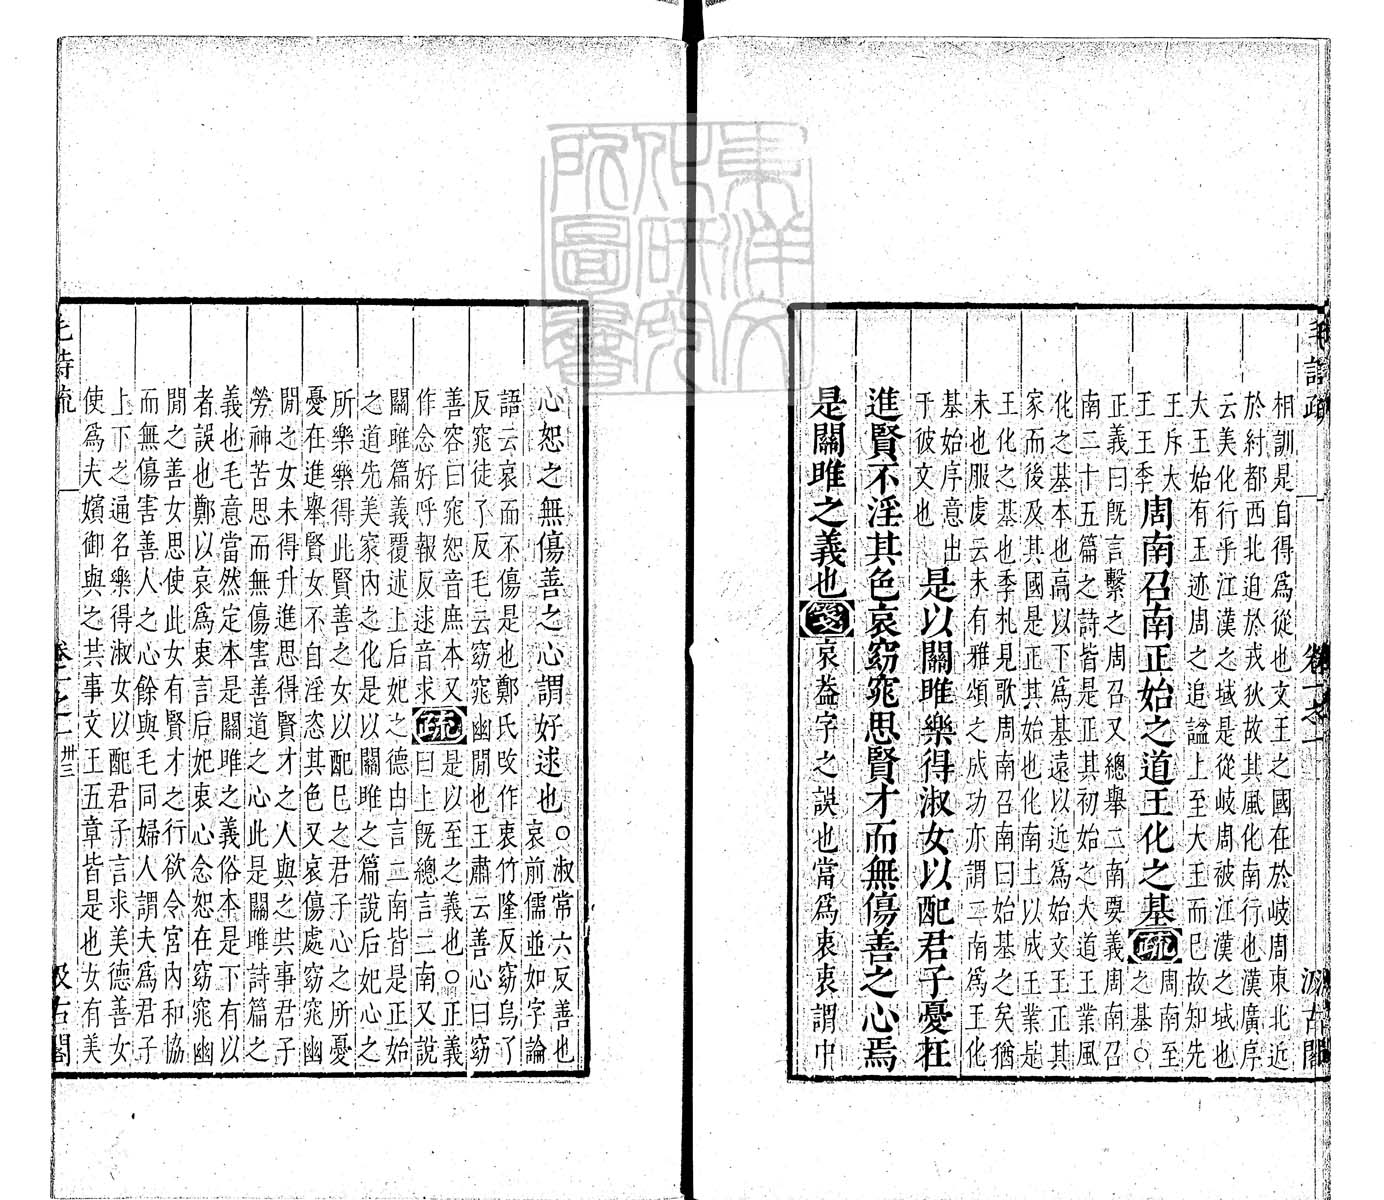 毛詩疏 一 卷一之一 汲古閣
相訓是自得爲從也文王之國在於岐周東北近
於紂都西北迫於戎狄故其風化南行也漢廣序
云美化行乎江漢之域是從岐周被江漢之域也
大王始有王迹周之追諡上至大王而已故知先
王斥大
王王季
周南召南正始之道王化之基疏
周南至
之基○
正義曰旣言繫之周召又總舉二南要義周南召
南二十五篇之詩皆是正其初始之大道王業風
化之基本也高以下爲基遠以近爲始文王正其
家而後及其國是正其始也化南土以成王業是
王化之基也季札見歌周南召南曰始基之矣猶
未也服虔云未有雅頌之成功亦謂二南爲王化
基始序意出
于彼文也
是以關雎樂得淑女以配君子憂在
進賢不淫其色哀窈窕思賢才而無傷善之心焉
是關雎之義也箋哀蓋字之誤也當爲衷衷謂中
心恕之無傷善之心謂好逑也○淑常六反善也
哀前儒並如字論
語云哀而不傷是也鄭氏改作衷竹隆反窈烏了
反窕徒了反毛云窈窕幽閒也王肅云善心曰窈
善容曰窕恕音庶本又
作念好呼報反逑音求
疏
是以至之義也○正義
曰上旣總言二南又說
關雎篇義覆述上后妃之德由言二南皆是正始
之道先美家內之化是以關雎之篇說后妃心之
所樂樂得此賢善之女以配巳之君子心之所憂
憂在進舉賢女不自淫恣其色又哀傷處窈窕幽
閒之女未得升進思得賢才之人與之共事君子
勞神苦思而無傷害善道之心此是關雎詩篇之
義也毛意當然定本是關雎之義俗本是下有以
者誤也鄭以哀爲衷言后妃衷心念恕在窈窕幽
閒之善女思使此女有賢才之行欲令宮內和協
而無傷害善人之心餘與毛同婦人謂夫爲君子
上下之通名樂得淑女以配君子言求美德善女
使爲夫嬪御與之共事文王五章皆是也女有美
毛詩疏 一 卷一之一 卅三 汲古閣
東洋文
化研究
所圖書